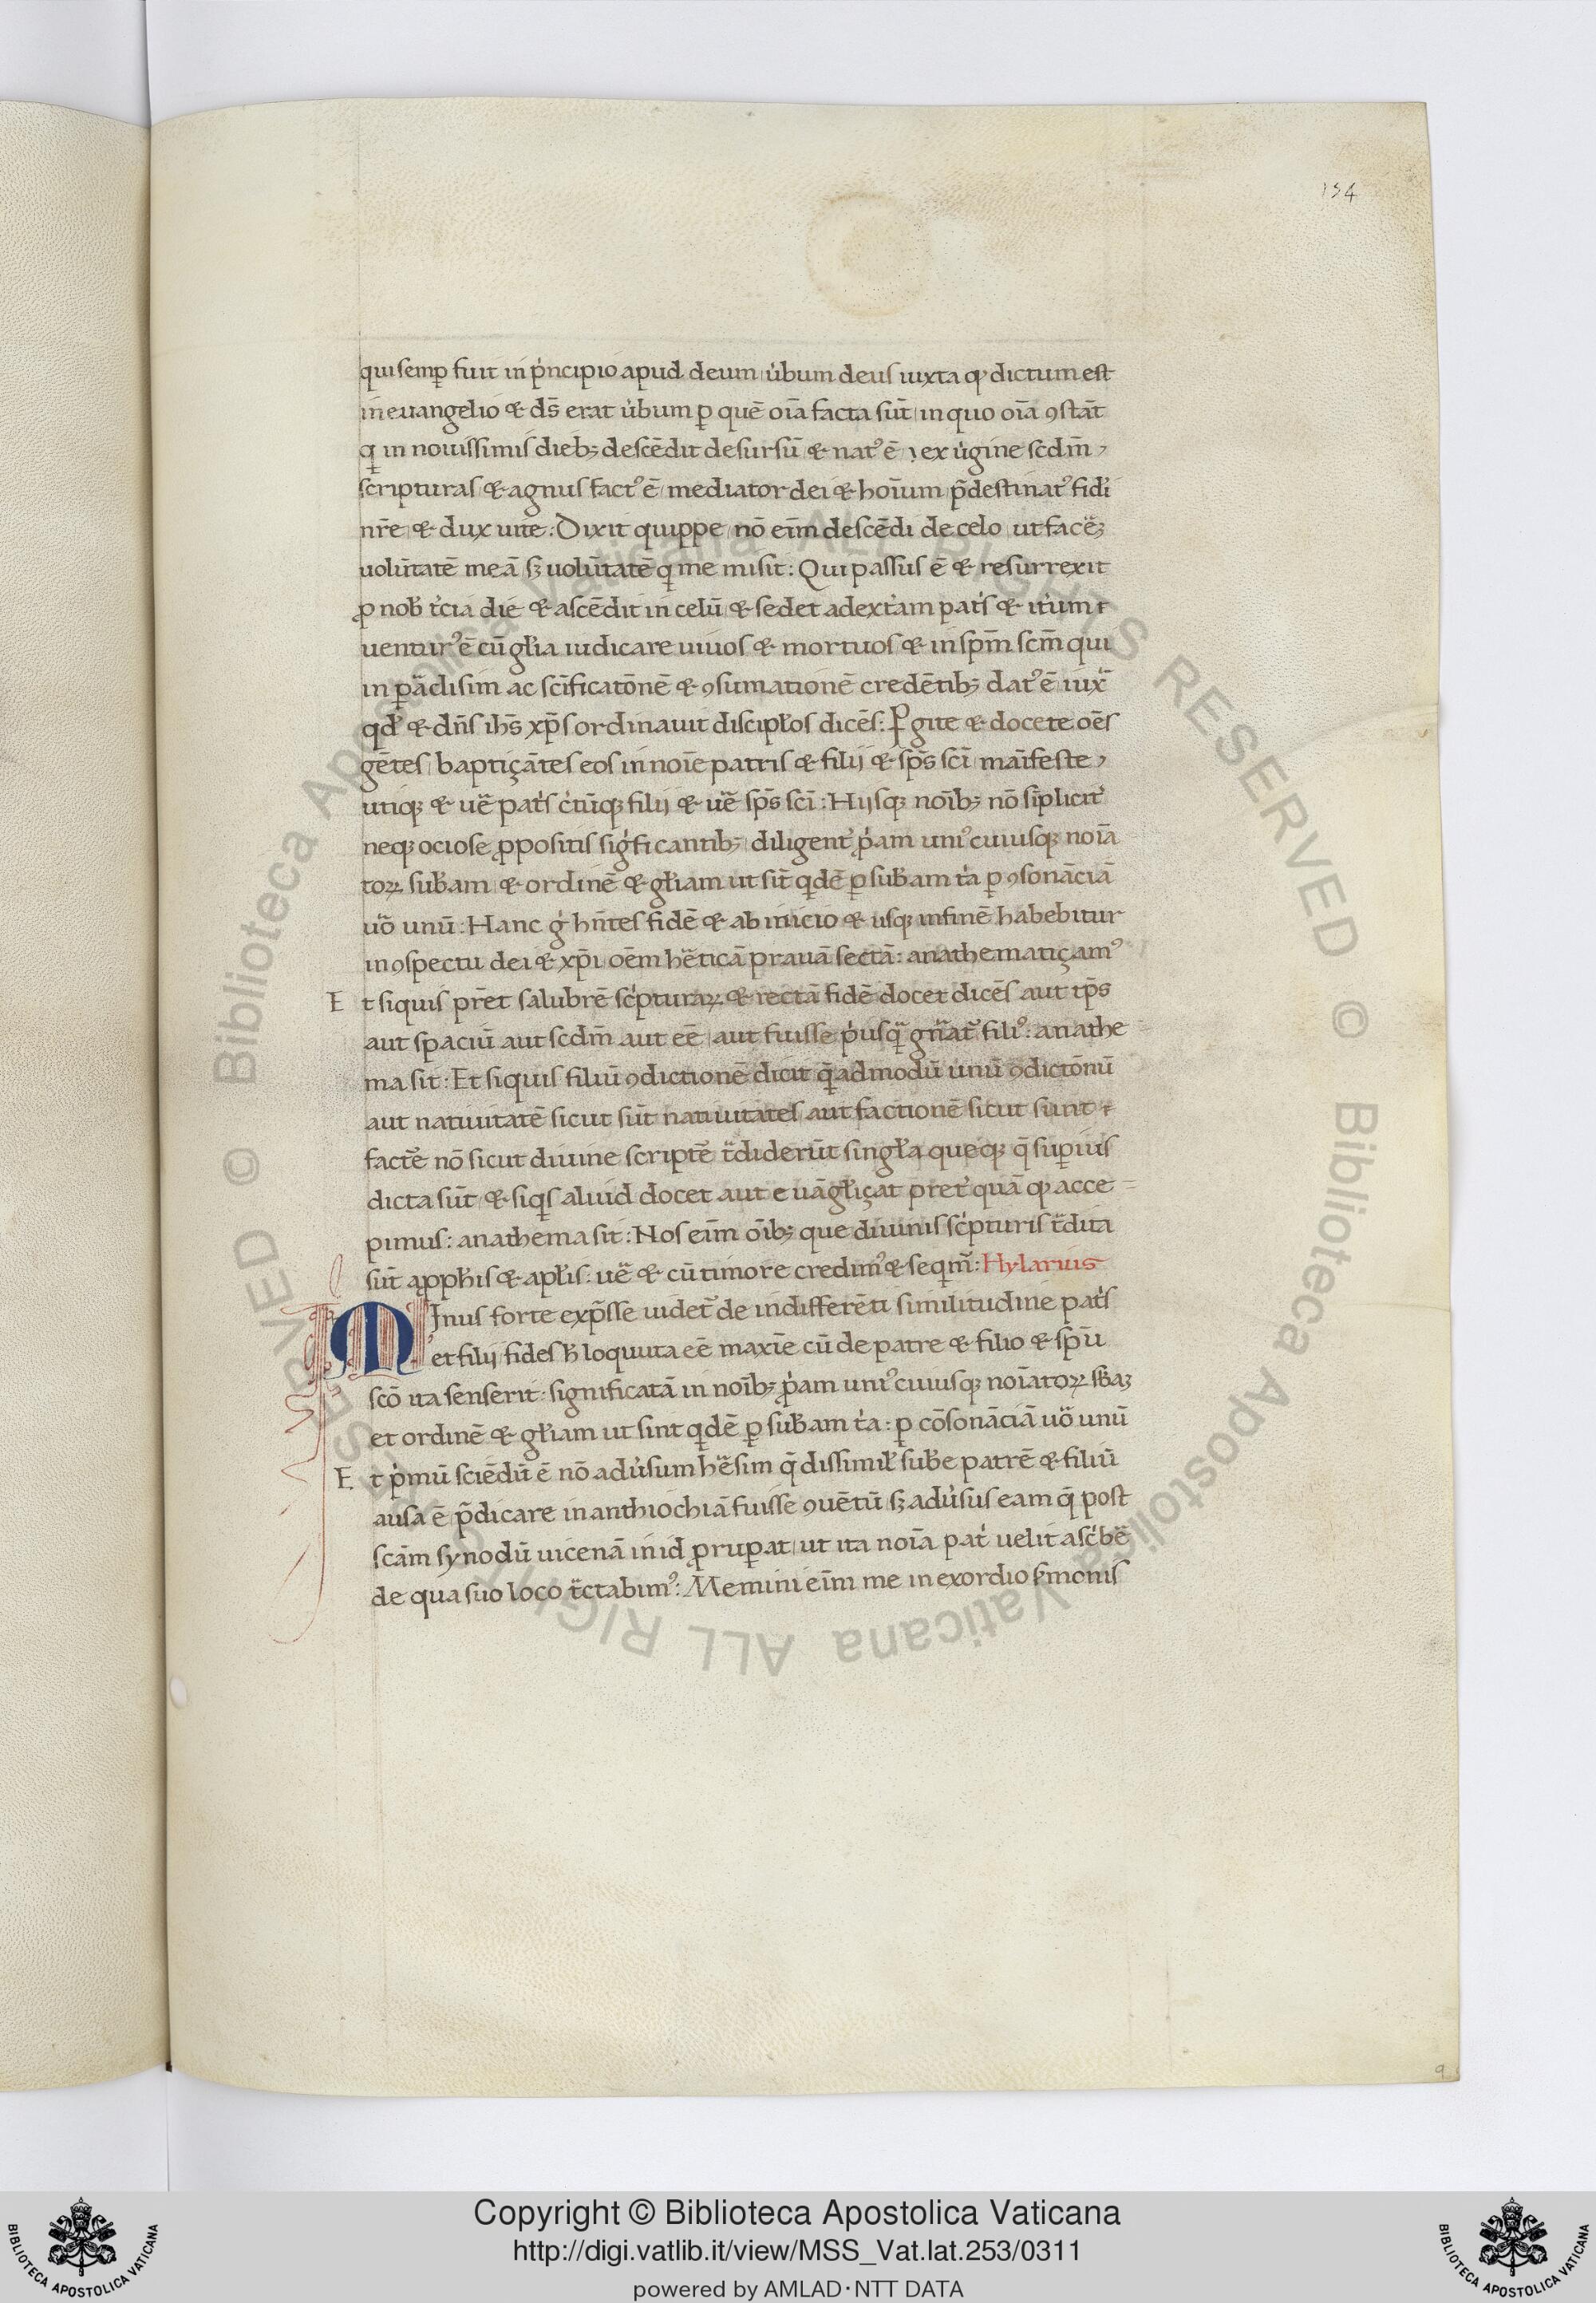 154
qui semꝑ fuit in pͥncipio apud deum uͤbum deus iuxta ꝙ dictum est
in euangelio & ds̄ erat uͤbum ꝑ quē oīa facta sūt in quo oīa ꝯstāt
q̨ in nouissimis dieb; descēdit desursū & natꝰ ē ex uͥgine scdm̄
scripturas & agnus factꝰ ē mediator dei & hoīum p̄destinatꝰ fidei
nr̄e & dux uite: Dixit quippe nō eīm descēdi de celo ut facēꝫ
uolūtatē meā sꝫ uolūtatē q̨ me misit: Qui passus ē & resurrexit
ꝓ nob̄ tͥcia die & ascēdit in celū & sedet adextͥam patͥs & itͥum
uenturꝰ ē cū gł̄ia iudicare uiuos & mortuos & in spm̄ scm̄ qui
in parͣclisim ac scīficatōnē & ꝯsumationē credētib; datꝰ ē iuxͣ
qd̄ & dn̄s ihs̄ xp̄s ordinauit discipłos dicēs: Ꝑgite & docete oēs
gētes baptiçātes eos in noīe patris & filij & sp̄s scī maīfeste
utiqꝫ & ueͤ patͥs cͥtūqꝫ filij & ueͤ sp̄s scī: Hijsqꝫ noīb; nō sīplicitͥ
neqꝫ ociose ꝓpositis sigͥficantib; diligentͥ ꝓpͥam uniꝰcuiusqꝫ noīa
toꝝ sub̄am & ordinē & gł̄iam ut sīt qͥdē ꝑ sub̄am tͥa ꝑ ꝯsonāciā
uͦo unū: Hanc gͥ hn̄tes fidē & ab inicio & usqꝫ infinē habebitur
in ꝯspectu dei & xp̄i oēm hēͤticā prauā sectā: anathematiçamꝰ
E t siquis pr̄et salubrē scͥpturaꝝ & rectā fidē docet dicēs aut tp̄s
aut spaciū aut scdm̄ aut eē aut fuisse pͥusqͣ gn̄at̄ filiꝰ: anathe
ma sit: Et siquis filiū ꝯdictionē dicit q̄admodū unū ꝯdictōnū
aut natiuitatē sicut sūt natiuitates aut factionē sicut sunt
factē nō sicut diuine scriptē tͣdiderūt singła queqꝫ q̄ superius
dicta sūt & siqͥs aliud docet aut euāgłiçat pretͥ quā ꝙ acce
pimus: anathema sit: Nos eīm oīb; que diuinis scͥpturis tͣdita
sūt aꝓpħis & apłis: ueͤ & cū timore credimꝰ & seqmͬ: Hylarius
MJnus forte exp̄sse uidet̄ de indifferēti similitudine patͥs
et filij fides ħ loquuta eē maxīe cū de patre & filio & sp̄u
scō ita senserit: significatā in noīb; ꝓpͥam uniꝰcuiusqꝫ noīatoꝝ sb̄aꝫ
et ordinē & gł̄iam ut sint qͥdē ꝑ sub̄am tͥa: ꝑ cōsonāciā uͦo unū
E t pͥmū sciēdū ē nō aduͥsum hēͤsim q̄ dissimił sub̄e patrē & filiū
ausa ē p̄dicare in anthiochiā fuisse ꝯuētū sꝫ aduͥsus eam q̄ post
scām synodū nicenā in id ꝓruperat ut ita noīa patͥ uelit ascͥbeͤ
de qua suo loco tͣctabimꝰ: Memini eīm me in exordio sͤmonis
9
Copyright © Biblioteca Apostolica Vaticana
http://digi.vatlib.it/view/MSS_Vat.lat.253/0311
powered by AMLAD·NTT DATA
BIBLIOTECA APOSTOLICA VATICANA
BIBLIOTECA APOSTOLICA VATICANA
© Biblioteca Apostolica Vaticana ALL RIGHTS RESERVED © Biblioteca Apostolica Vaticana ALL RIGHTS RESERVED